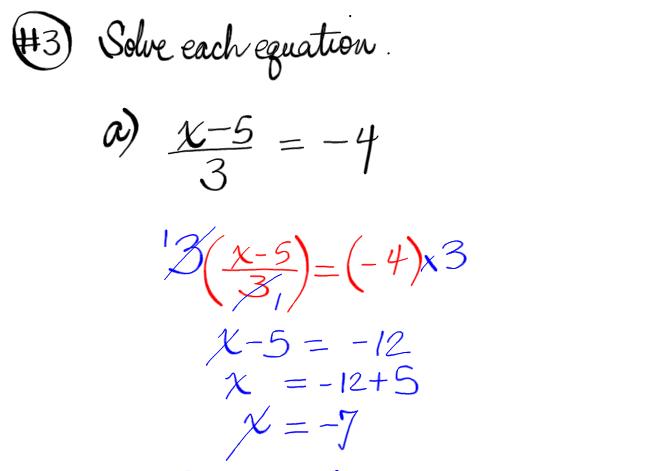 #3 Solve each equation.
a) x-5/3 = -4
¹3(x-5/3₁) = (-4)x3
x-5 = -12
x = -12+5
x = -7